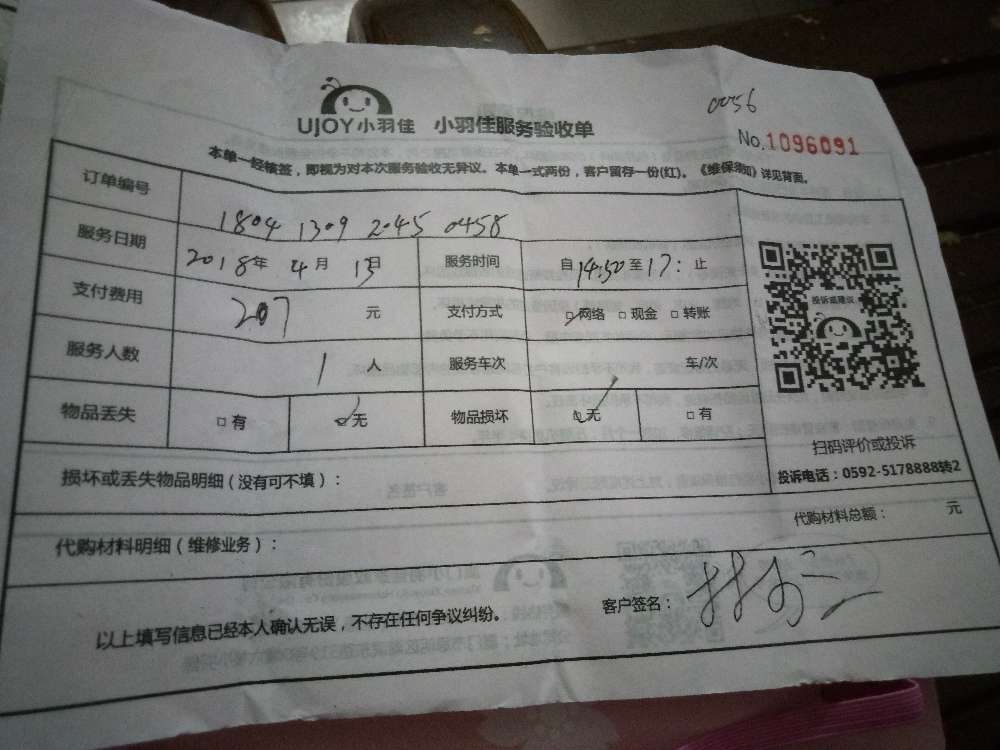 0056
UJOY小羽佳 小羽佳服务验收单
No.1096091
本单一经核签，即视为对本次服务验收无异议。本单一式两份，客户留存一份(红)。《维保须知》详见背面。
订单编号 1804 1309 2045 0458
服务日期 2018年 4月 13日 服务时间 自14:50至17:止
支付费用 207 元 支付方式 网络 现金 转账
服务人数 1 人 服务车次 车/次
物品丢失 有 无 物品损坏 无 有
投诉或建议
扫码评价或投诉
投诉电话：0592-5178888转2
损坏或丢失物品明细（没有可不填）：
代购材料明细（维修业务）： 代购材料总额： 元
以上填写信息已经本人确认无误，不存在任何争议纠纷。 客户签名：